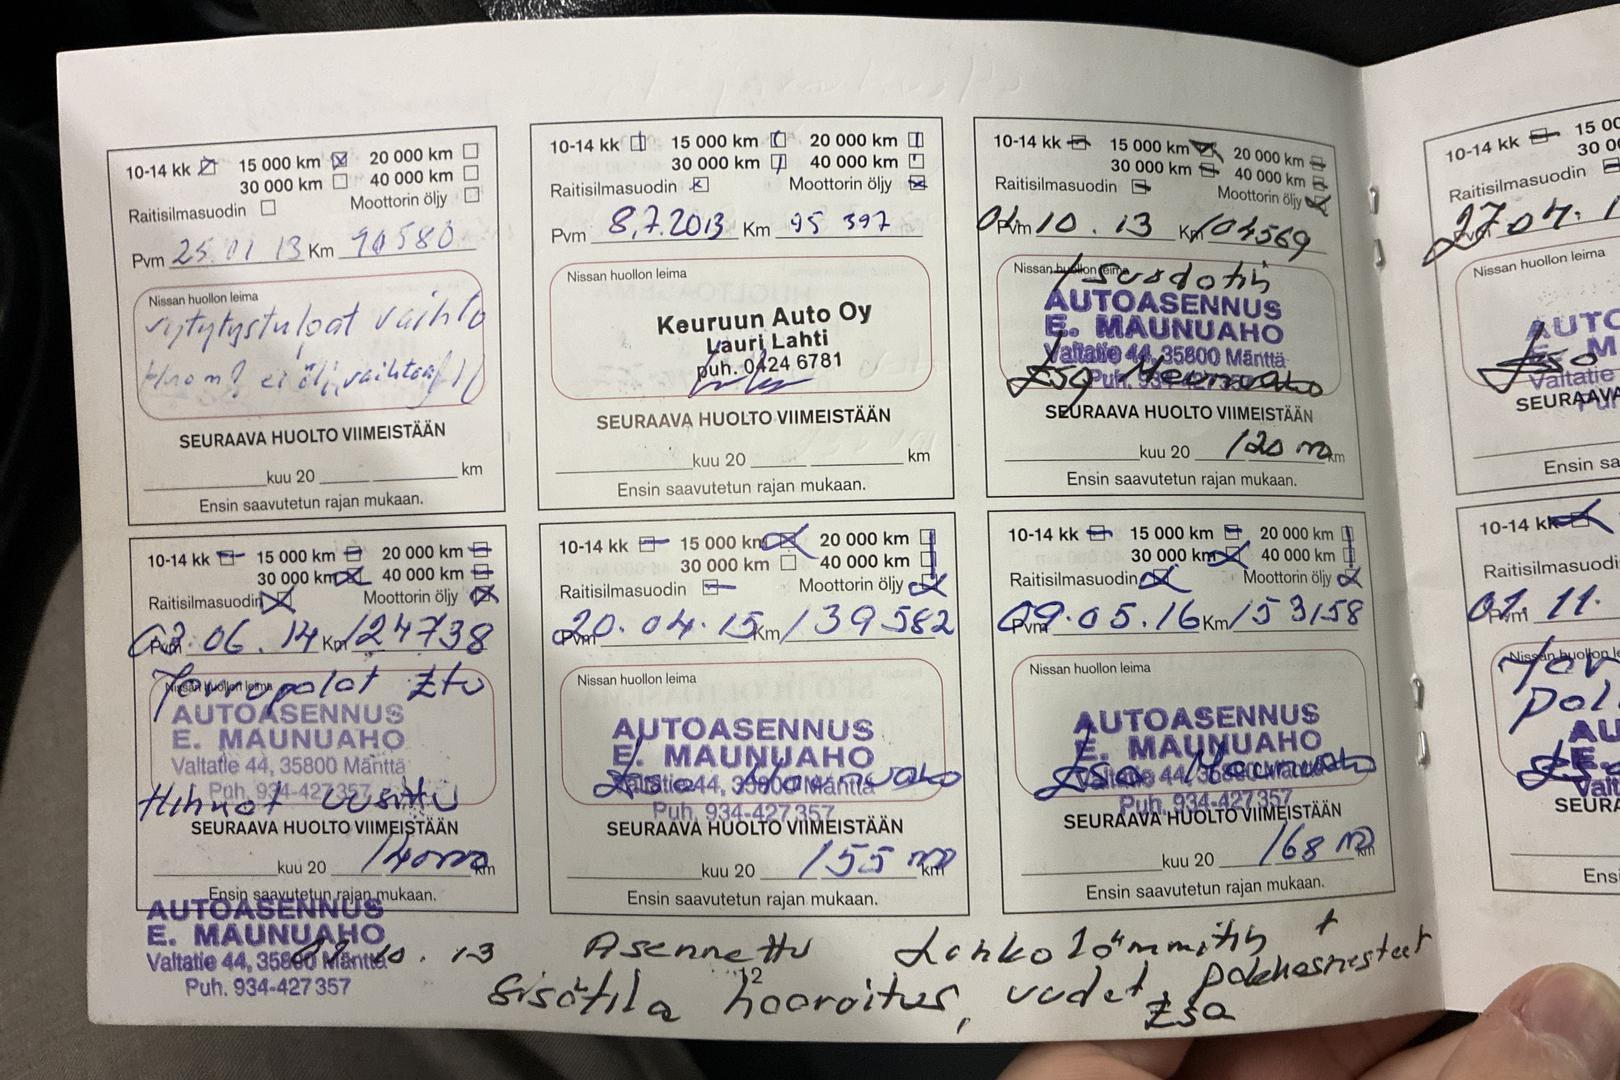 10-14 kk 15 000 km 20 000 km
30 000 km 40 000 km
Raitisilmasuodin Moottorin öljy
Pvm 25.01 13 Km 90580
Nissan huollon leima
sytytystulpat vaihto
Huom! ei ölj. vaihtoa!
SEURAAVA HUOLTO VIIMEISTÄÄN
kuu 20 km
Ensin saavutetun rajan mukaan.
10-14 kk 15 000 km 20 000 km
30 000 km 40 000 km
Raitisilmasuodin Moottorin öljy
Pvm 8,7.2013 Km 95 397
Nissan huollon leima
Keuruun Auto Oy
Lauri Lahti
puh. 0424 6781
SEURAAVA HUOLTO VIIMEISTÄÄN
kuu 20 km
Ensin saavutetun rajan mukaan.
10-14 kk 15 000 km 20 000 km
30 000 km 40 000 km
Raitisilmasuodin Moottorin öljy
Pvm 10.13 Km 104569
Nissan huollon leima
AUTOASENNUS
E. MAUNUAHO
Valtatie 44, 35800 Mänttä
Puh. 934-427357
Esa Maunuaho
SEURAAVA HUOLTO VIIMEISTÄÄN
kuu 20 120 km
Ensin saavutetun rajan mukaan.
10-14 kk 15 000 km 20 000 km
30 000 km 40 000 km
Raitisilmasuodin Moottorin öljy
Pvm 02.06.14 Km 124738
Jarrupalat Etu
Nissan huollon leima
AUTOASENNUS
E. MAUNUAHO
Valtatie 44, 35800 Mänttä
Puh. 934-427357
Hihnat uusittu
SEURAAVA HUOLTO VIIMEISTÄÄN
kuu 20 140 km
Ensin saavutetun rajan mukaan.
10-14 kk 15 000 km 20 000 km
30 000 km 40 000 km
Raitisilmasuodin Moottorin öljy
Pvm 20.04.15 Km 139582
Nissan huollon leima
AUTOASENNUS
E. MAUNUAHO
Valtatie 44, 35800 Mänttä
Esa Maunuaho
Puh. 934-427357
SEURAAVA HUOLTO VIIMEISTÄÄN
kuu 20 155 km
Ensin saavutetun rajan mukaan.
10-14 kk 15 000 km 20 000 km
30 000 km 40 000 km
Raitisilmasuodin Moottorin öljy
Pvm 09.05.16 Km 153158
Nissan huollon leima
AUTOASENNUS
E. MAUNUAHO
Valtatie 44, 35800 Mänttä
Esa Maunuaho
Puh. 934-427357
SEURAAVA HUOLTO VIIMEISTÄÄN
kuu 20 168 km
Ensin saavutetun rajan mukaan.
AUTOASENNUS
E. MAUNUAHO
Valtatie 44, 35800 Mänttä
Puh. 934-427357
10.13 Asennettu Lohkolämmitin +
Sisätila haaroitus, Esa
10-14 kk 15 00
30 00
Raitisilmasuodin
Pvm 27 04. 1
Nissan huollon leima
AUTO
Esa
Valtatie
SEURAAVA
Ensin sa
10-14 kk
Raitisilmasuodi
Pvm 01 11.
Nissan huollon le
AU
E.
Valt
SEURA
Ens